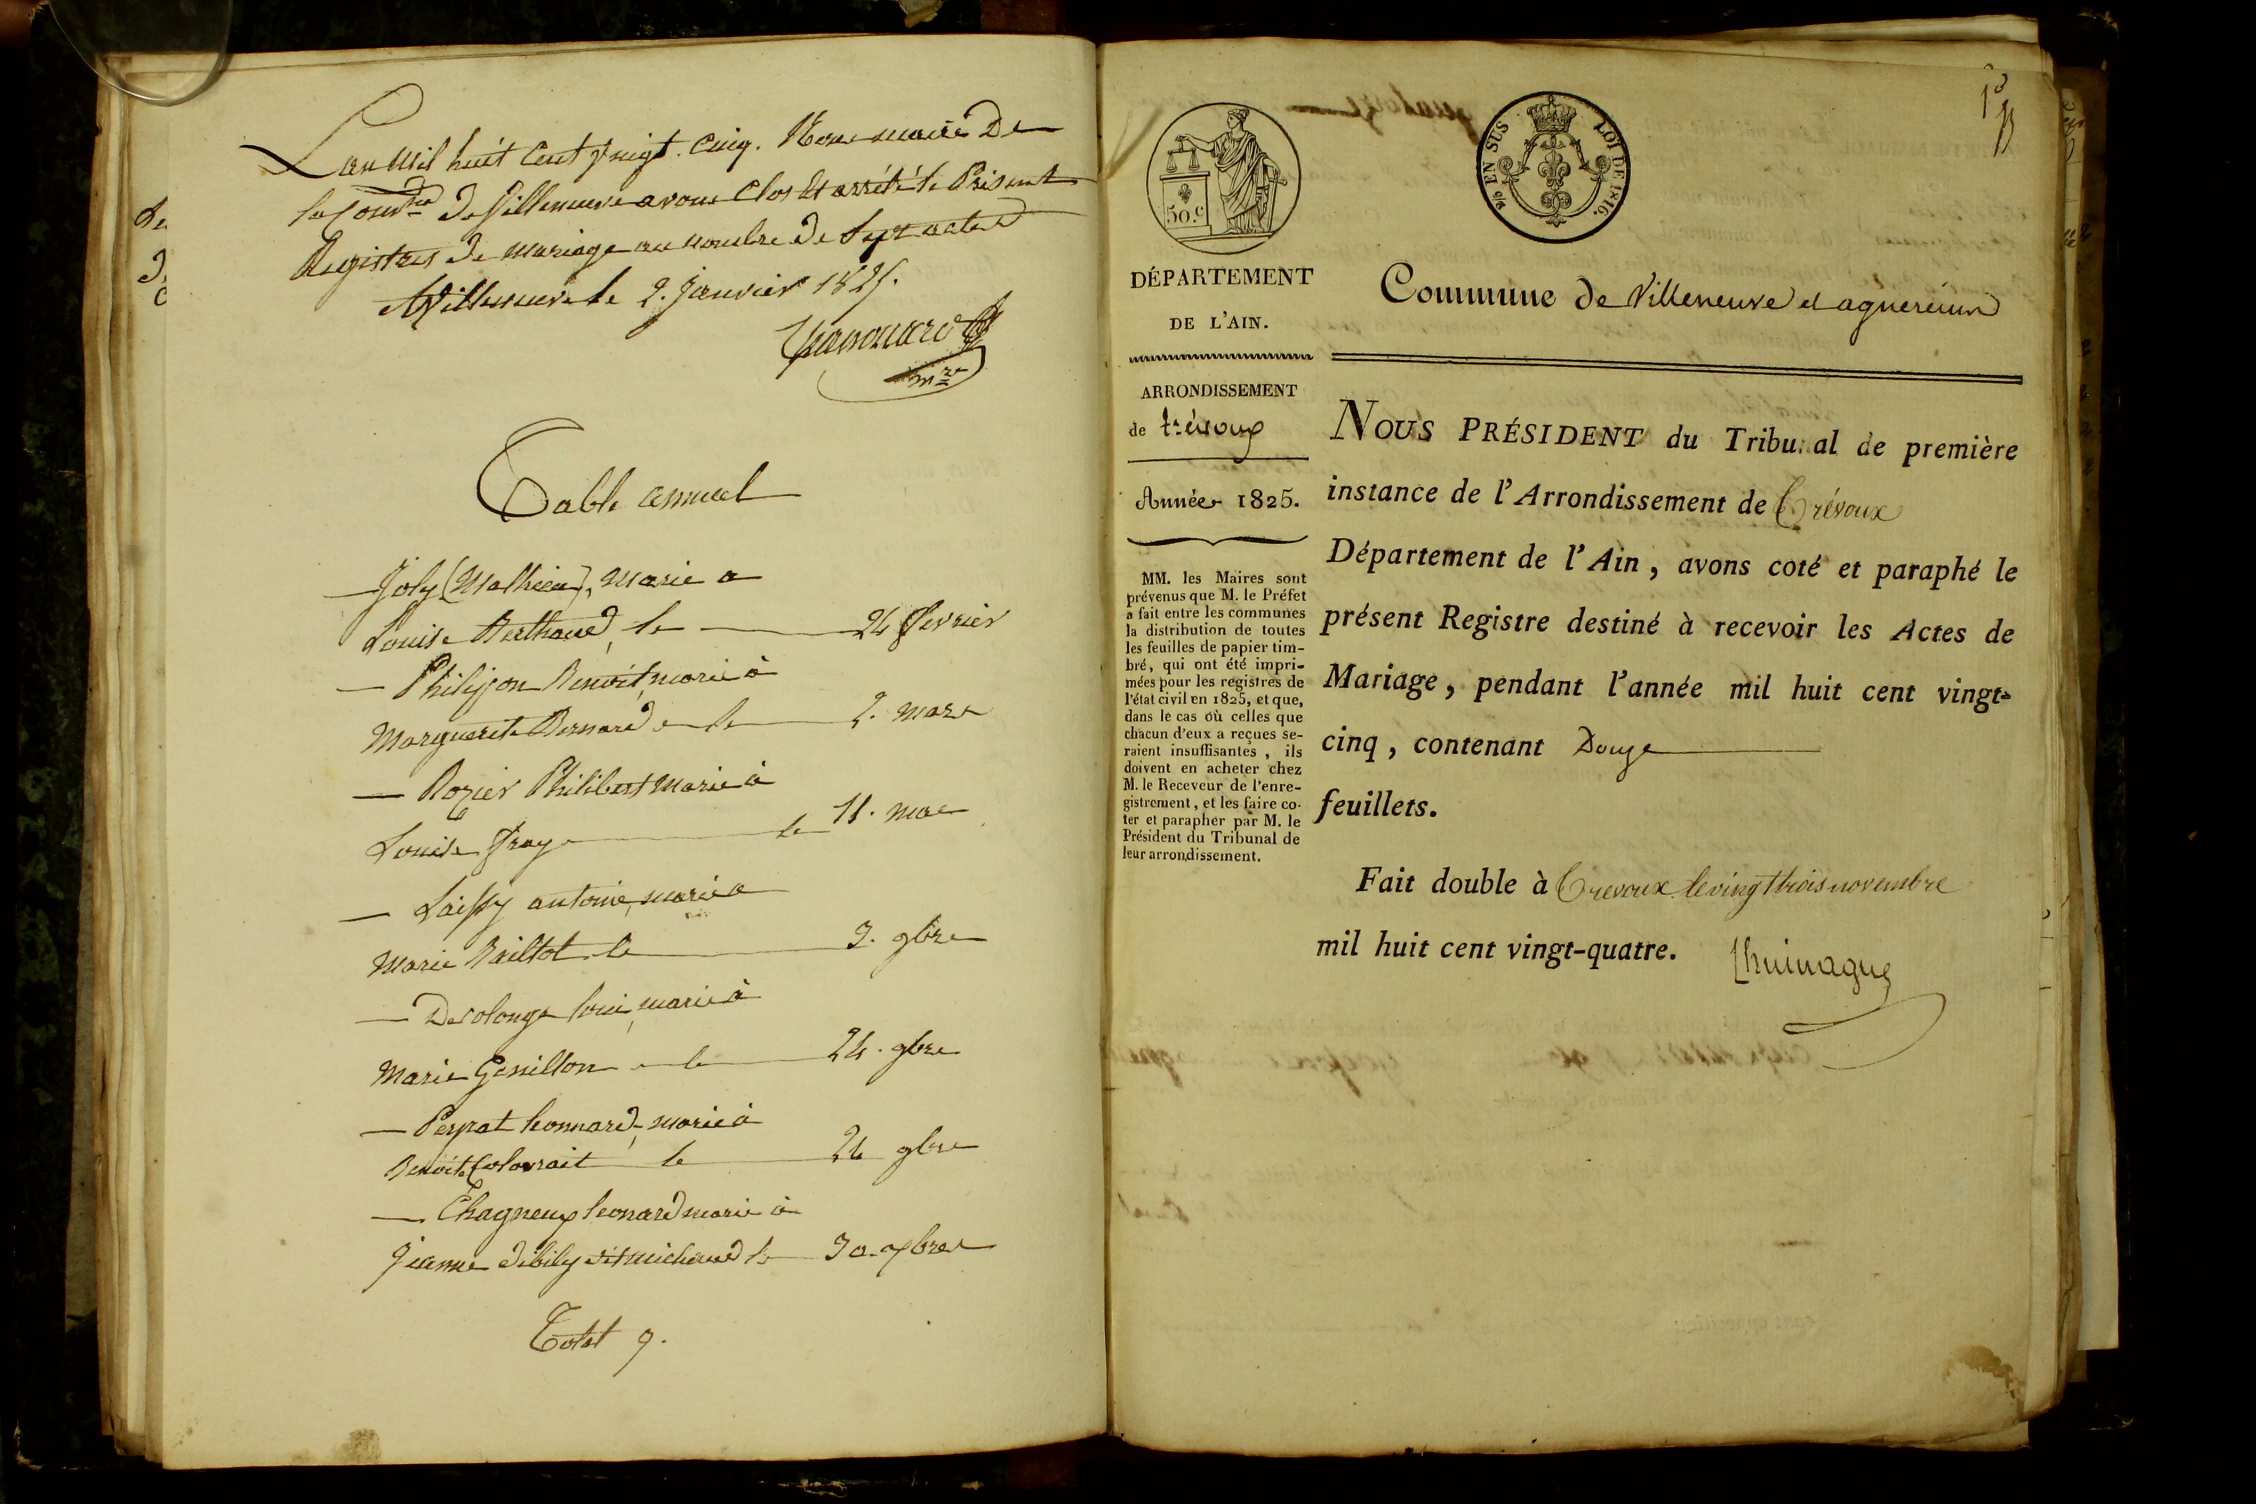 L'an Mil huit Cent vingt. Cinq. Nous maire De
la Com.ne De Villeneuve avons Clos Et arrété le Présent
Registres De mariage au nombre De Sept actes
A Villeneuve le 2. Janvier 1825.
mre
Table annuel
— Joly (Mathieu), Marié a
Louise Berthaud, le — 24 fevrier
— Philippon Benoit, marié à
Marguerite Bernard — le — 2. mars
— Rozier Philibert Marié à
Louise — le 11. mai
— Laissy antoine, marié a
Marie Bailtot le — 3. 9bre
— Decolonge loui, marié à
Marie Genillon — le — 24. 9bre
— Perrat leonnard, marié à
Benoite le — 24 9bre
— Chagneux leonard marié à
Jeanne le — 30. 9bre
Total 7.
1er
50.c
EN SUS LOI DE 1816.
DÉPARTEMENT
DE L'AIN.
Commune de Villeneuve et agnereins
ARRONDISSEMENT
de trévoux
Année 1825.
MM. les Maires sont
prévenus que M. le Préfet
a fait entre les communes
la distribution de toutes
les feuilles de papier tim-
bré, qui ont été impri-
mées pour les registres de
l'état civil en 1825, et que,
dans le cas où celles que
chacun d'eux a reçues se-
raient insuffisantes, ils
doivent en acheter chez
M. le Receveur de l'enre-
gistrement, et les faire co-
ter et parapher par M. le
Président du Tribunal de
leur arrondissement.
NOUS PRÉSIDENT du Tribunal de première
instance de l'Arrondissement de Trévoux
Département de l'Ain, avons coté et paraphé le
présent Registre destiné à recevoir les Actes de
Mariage, pendant l'année mil huit cent vingt-
cinq, contenant Douze
feuillets.
Fait double à Trevoux le vingt trois novembre
mil huit cent vingt-quatre.